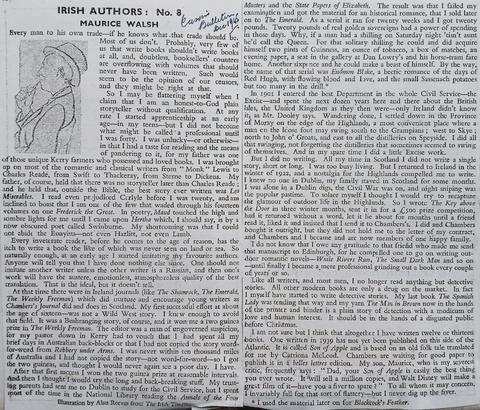 IRISH AUTHORS: No. 8.
MAURICE WALSH
Every man to his own trade—if he knows what that trade should be.
Most of us don't. Probably, very few of
us that write books shouldn't write books
at all, and, doubtless, booksellers' counters
are overflowing with volumes that should
never have been written. Such would
seem to be the opinion of our censors,
and they might be right at that.
So I may be flattering myself when I
claim that I am an honest-to-God plain
storyteller without qualification. At any
rate I started apprenticeship at an early
age—in my teens—but I did not become
what might be called a professional until
I was forty. I was unlucky—or otherwise—
in that I had a taste for reading and the means
of pandering to it, for my father was one
of those unique Kerry farmers who possessed and loved books. I was brought
up on most of the romantic and classical writers from "Monk" Lewis to
Charles Reade, from Swift to Thackeray, from Sterne to Dickens. My
father, of course, held that there was no storyteller later than Charles Reade;
and he held that, outside the Bible, the best story ever written was Les
Miserables. I read even prejudiced Carlyle before I was twenty, and am
inclined to boast that I am one of the few that waded through his fourteen
volumes on Frederick the Great. In poetry, Maud touched the high and
sombre lights for me until I came upon Hertha which, I should say, is by a
now obscured poet called Swinburne. My shortcoming was that I could
not thole the Essayists—not even Hazlitt, nor even Lamb.
Every inveterate reader, before he comes to the age of reason, has the
itch to write a book the like of which was never seen on land or sea. So
naturally enough, at an early age I started imitating my favourite authors.
Anyone will tell you that I have done nothing else since. One should not
imitate another writer unless the other writer is a Russian, and then one's
work will have the austere, emotionless, atmosphereless quality of the best
translations. That is the ideal, but it doesn't sell.
At that time there were in Ireland journals (like The Shamrock, The Emerald,
The Weekly Freeman) which did nurture and encourage young writers as
Chambers's Journal did and does in Scotland. My first successful effort at about
the age of sixteen—was not a Wild West story. I low enough to avoid
that field. It was a Bushranging story, of course, and it won me a two guinea
prize in The Weekly Freeman. The editor was a man of ungoverned suspicion,
for my pastor down in Kerry had to vouch that I had spent all my
brief days in Australian back-blocks or that I had not copied the story word-
for-word from Robbery under Arms. I was never within ten thousand miles
of Australia and I had not copied the story—not word-for-word—so I got
the two guineas, and thought I would never again see a poor day. I have.
After that first success I won the two guinea prize at reasonable intervals.
And then I thought I would try the long and back-breaking stuff. My trust-
ing parents had sent me to Dublin to study for the Civil Service, but I spent
most of the time in the National Library reading the Annals of the Four
Illustration by Alan Reeves from The Irish Times.
Masters and the State Papers of Elizabeth. The result was that I filled my
examination and got the material for an historical romance, that I sold later
on to The Emerald. As a serial it ran for twenty weeks and I got twenty
pounds. Twenty pounds of real golden sovereigns had a power of spending
in those days. Why, if a man had a shilling on Saturday night 'tisn't aunt
he'd call the Queen. For that solitary shilling he could and did acquire
himself two pints of Guinness, an ounce of tobacco, a box of matches, an
evening paper, a seat in the gallery at Dan Lowry's and his horse-tram fare
home. Another sixpence and he could make a beast of himself. By the way,
the name of that serial was Eudmon Blake, a hectic romance of the days of
Red Hugh, with flowing blood and Love, and the small Sassenach potatoes
but too many in the drill."
In 1901 I entered the best Department in the whole Civil Service—the
Excise—and spent the next dozen years here and there about the British
Isles, the United Kingdom as they then were—only Ireland didn't know
it, as Mr. Dooley says. Wandering done, I settled down in the Province
of Moray on the edge of the Highlands, a most convenient place where a
man on the loose foot may swing south to the Grampians; west to Skye;
north to John o' Groats, and east to all the distilleries on Speyside. I did all
that swinging, not forgetting the distilleries that sometimes seemed to swing
of themselves. And in my spare time I did a little Excise work.
But I did no writing. All my time in Scotland I did not write a single
story, short or long. I was too busy living. But I returned to Ireland in the
winter of 1922, and a nostalgia for the Highlands compelled me to write.
I knew no one in Dublin, my family stayed in Scotland for some months.
I was alone in a Dublin digs, the Civil War was on, and night sniping was
the popular pastime. To solace myself I thought I would try to recapture
the glamour of outdoor life in the Highlands. So I wrote The Key above
the Door in three winter months, sent it in for a £500 prize competition,
had it returned without a word, let it lie about for months until a friend
read it, liked it and insisted that I send it to Chambers's. I did and Chambers
bought it outright, but they did not hold me to the letter of my contract,
and Chambers and I became and are now members of one happy family.
I do not know that I owe any gratitude to that friend who made me send
that manuscript to Edinburgh, for he compelled me to go on writing out-
door romantic novels—While Rivers Run, The Small Dark Man and so on
—until finally I became a mere professional grinding out a book every couple
of years or so.
Like all writers, and most men, I no longer read anything but detective
stories. All other modern books are only a drug on the market. In fact
I myself have started to write detective stories. My last book The Spanish
Lady was tending that way and my yarn The Man in Brown now in the hands
of the printer and binder is a plain story of detection with a modicum of
love and human interest. It should be in the hands of a disgusted public
before Christmas.
I am not sure but I think that altogether I have written twelve or thirteen
books. One written in 1939 has not yet been published on this side of the
Atlantic. It is called Son of Apple and is based on an old folk tale translated
for me by Catriona McLeod. Chambers are waiting for good paper to
publish it in a letter edition. My son, Maurice, who is my severest
critic, frequently says: "Dad, your Son of Apple is easily the best thing
you ever wrote. It will sell a million copies, and Walt Disney will make a
great film of it—have you a fiver to spare?" To all whom it may concern,
invariably fall for that sort of flattery—but I never dig up the fiver.
* I used the material later on for Blackcock's Feather.